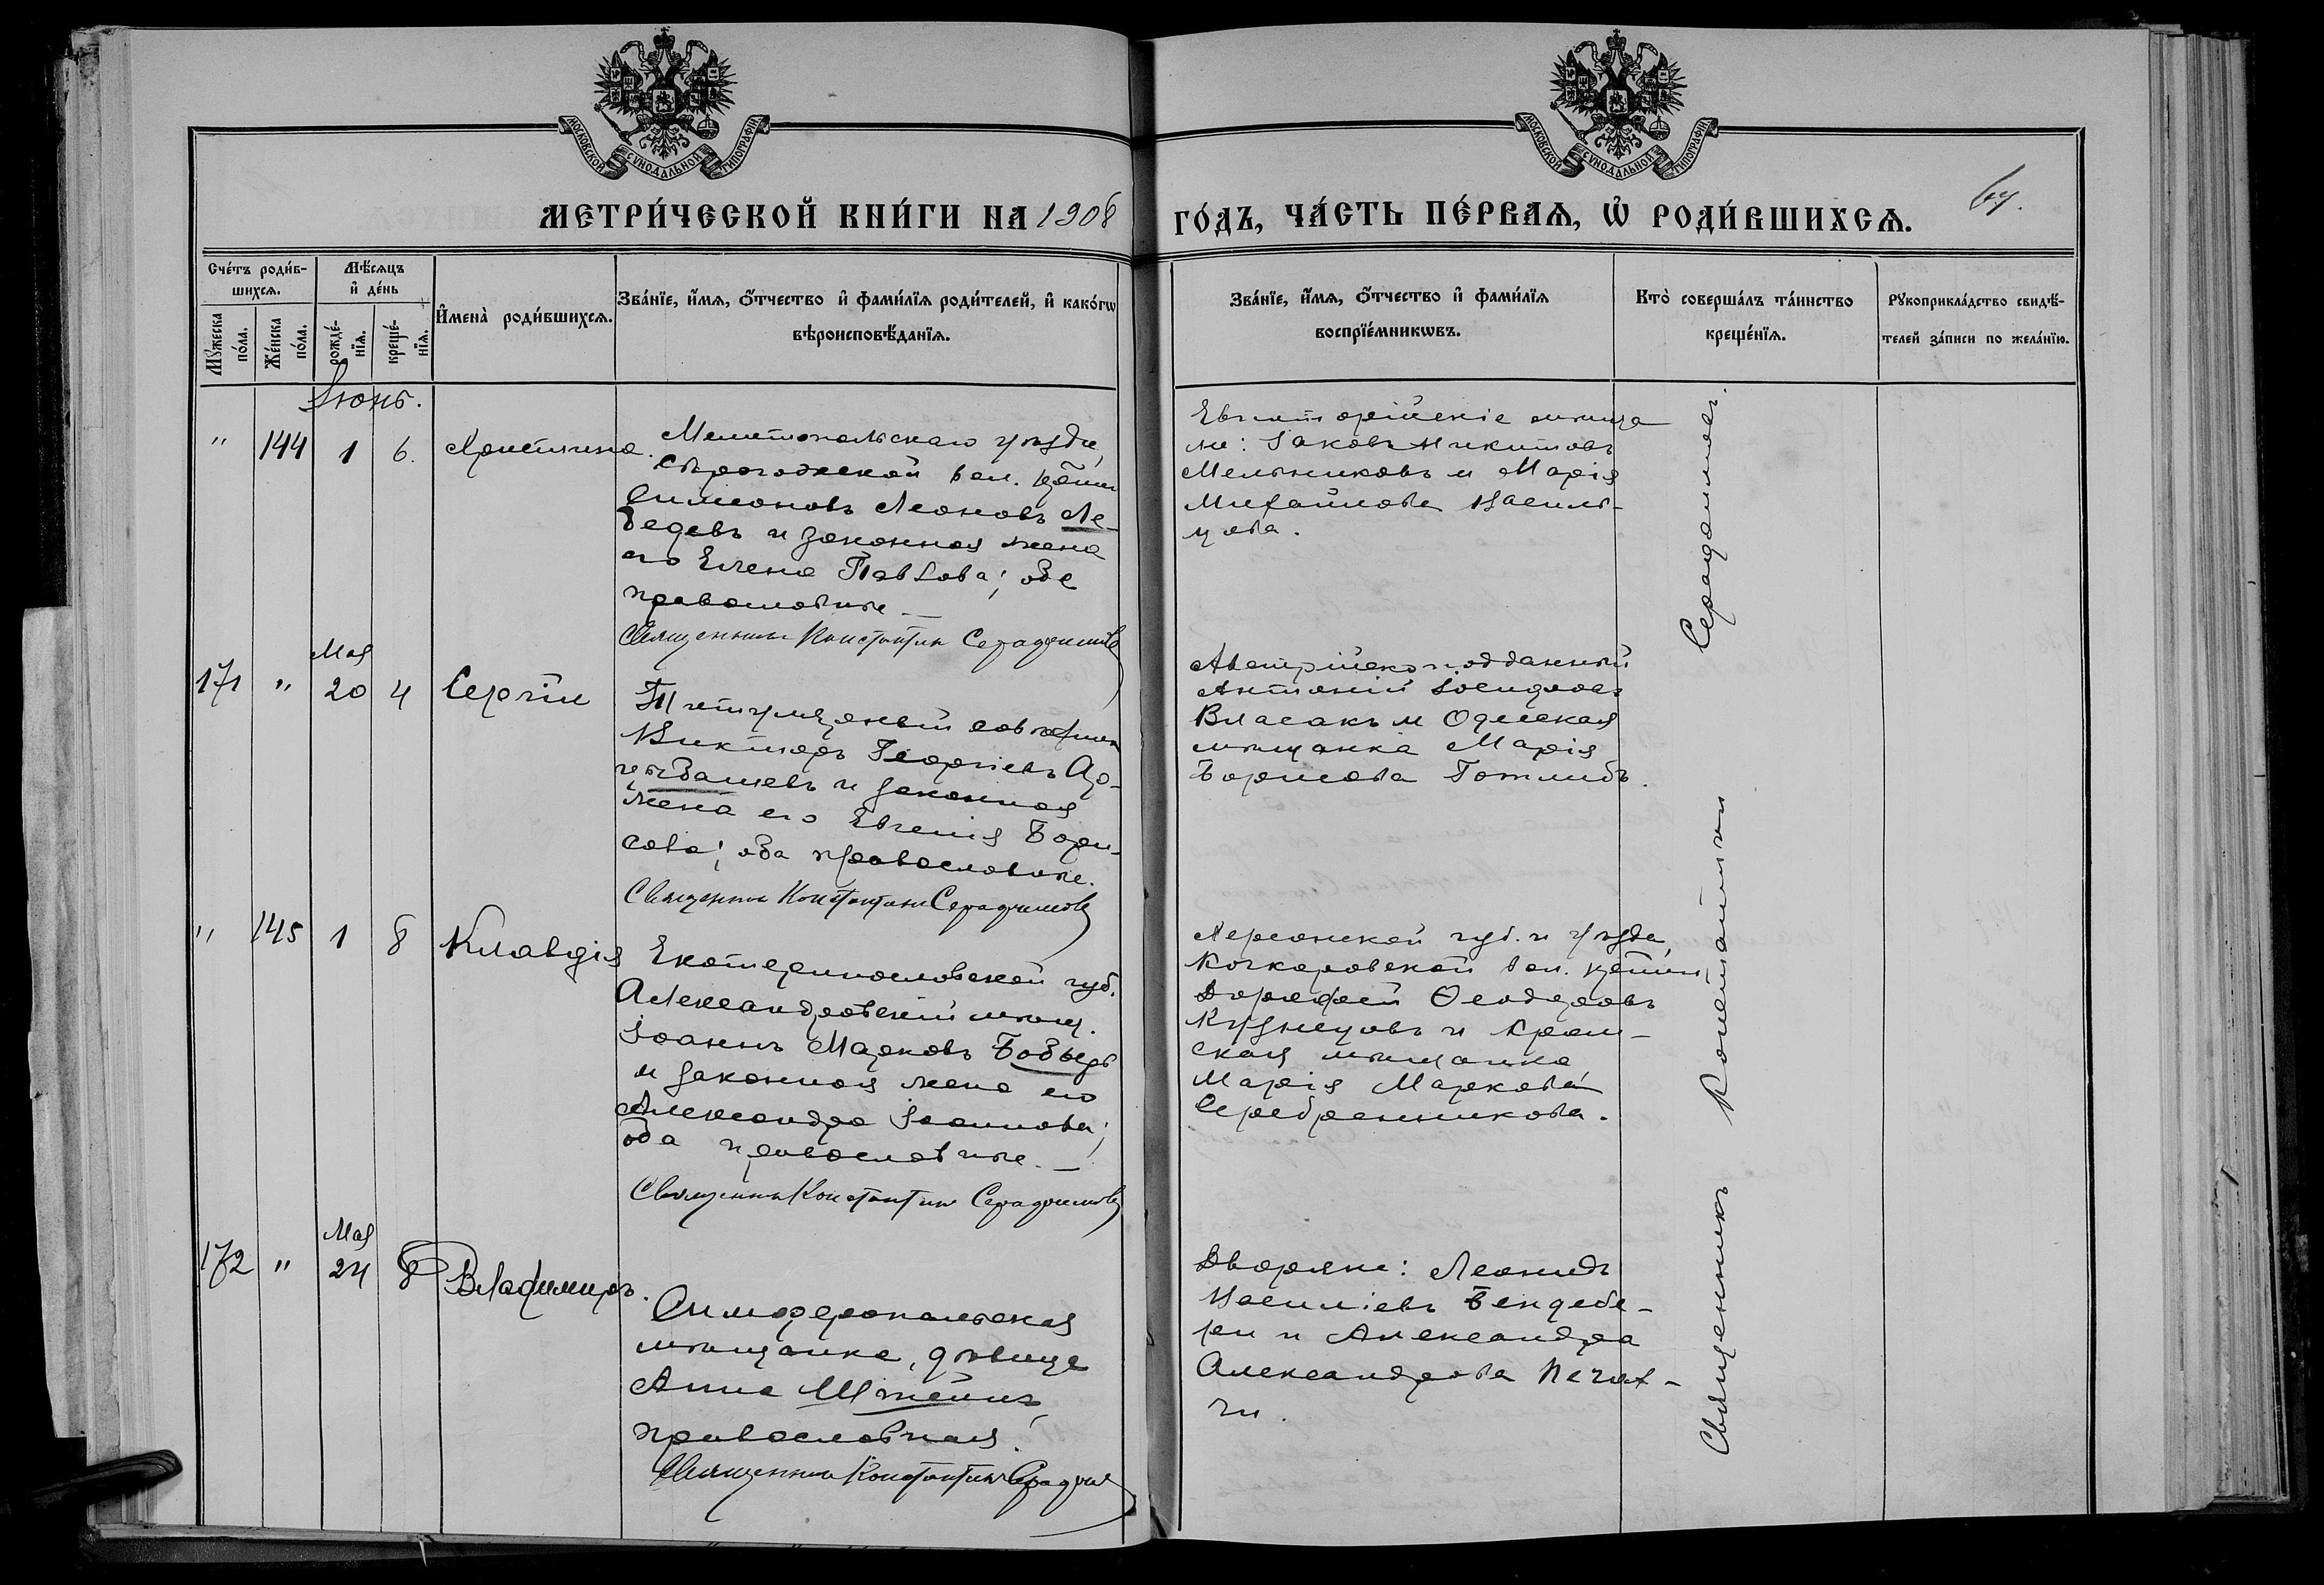 МОСКОВСКОЙ СѴНОДАЛЬНОЙ ТИПОГРАФІИ
МОСКОВСКОЙ СѴНОДАЛЬНОЙ ТИПОГРАФІИ
МЕТРИ́ЧЕСКОЙ КНИ́ГИ НА 1908
ГО́ДЪ, ЧА́СТЬ ПЕ́РВАѦ, Ѡ РОДИ́ВШИХСѦ.
Сче́тъ роди́в-
шихсѧ.
Мꙋжеска
по́ла.
Же́нска
по́ла.
Мѣ́сѧцъ
и҆ де́нь
рожде́-
нїѧ.
креще́-
нїѧ.
И҆мена̀ роди́вшихсѧ.
Зва́нїе, и҆́мѧ, ѻ҆́тчество и҆ фами́лїѧ роди́телей, и҆ како́гѡ
вѣроисповѣ́данїѧ.
Зва́нїе, и҆́мѧ, ѻ҆́тчество и҆ фами́лїѧ
воспрїе́мникѡвъ.
Кто̀ соверша́лъ та́инство
креще́нїѧ.
Рꙋкоприкла́дство свидѣ́-
телей за́писи по жела́нїю.
Іюнь.
" 144 1 6. Христина.
Мелитопольскаго уѣзда,
Сѣрогозской вол. кр-нин
Симеонъ Леоновъ Ле-
бедевъ и законная жена
его Елена Павлова; обе
православные. —
Священник Константин Серафимов
Евпаторійскіе мѣща
не: Іаковъ Никитовъ
Мельниковъ и Марія
Михайлова Василь-
цова.
Мая
171 " 20 4 Сергій
Титулярный совѣтник
Викторъ Георгіевъ Ар-
цыбашевъ и законная
жена его Евгенія Бори-
сова; оба православные.
Священник Константин Серафимов
Австрійскоподданный
Антоній Іосифовъ
Власакъ и Одесская
мѣщанка Марія
Борисова Готлибъ.
" 145 1 8 Клавдія
Екатеринославской губ.
Александровскій мѣщ.
Іоаннъ Марковъ Бобырь
и законная жена его
Александра Іоаннова;
оба православные. —
Священник Константин Серафимов
Херсонской губ. и уѣзда,
Качкаровской вол. кр-нин
Дорофей Ѳеодоровъ
Кузнецовъ и Орѣхов-
ская мѣщанка
Марія Маркова
Серебренникова.
Мая
172 " 24 8 Владимиръ.
Симферопольская
мѣщанка, дѣвица
Анна Штейнъ
православная.
Священник Константин Серафим
Дворяне: Леонидъ
Василіевъ Бендебе-
ри и Александра
Александрова
Священникъ Константинъ Серафимовъ.